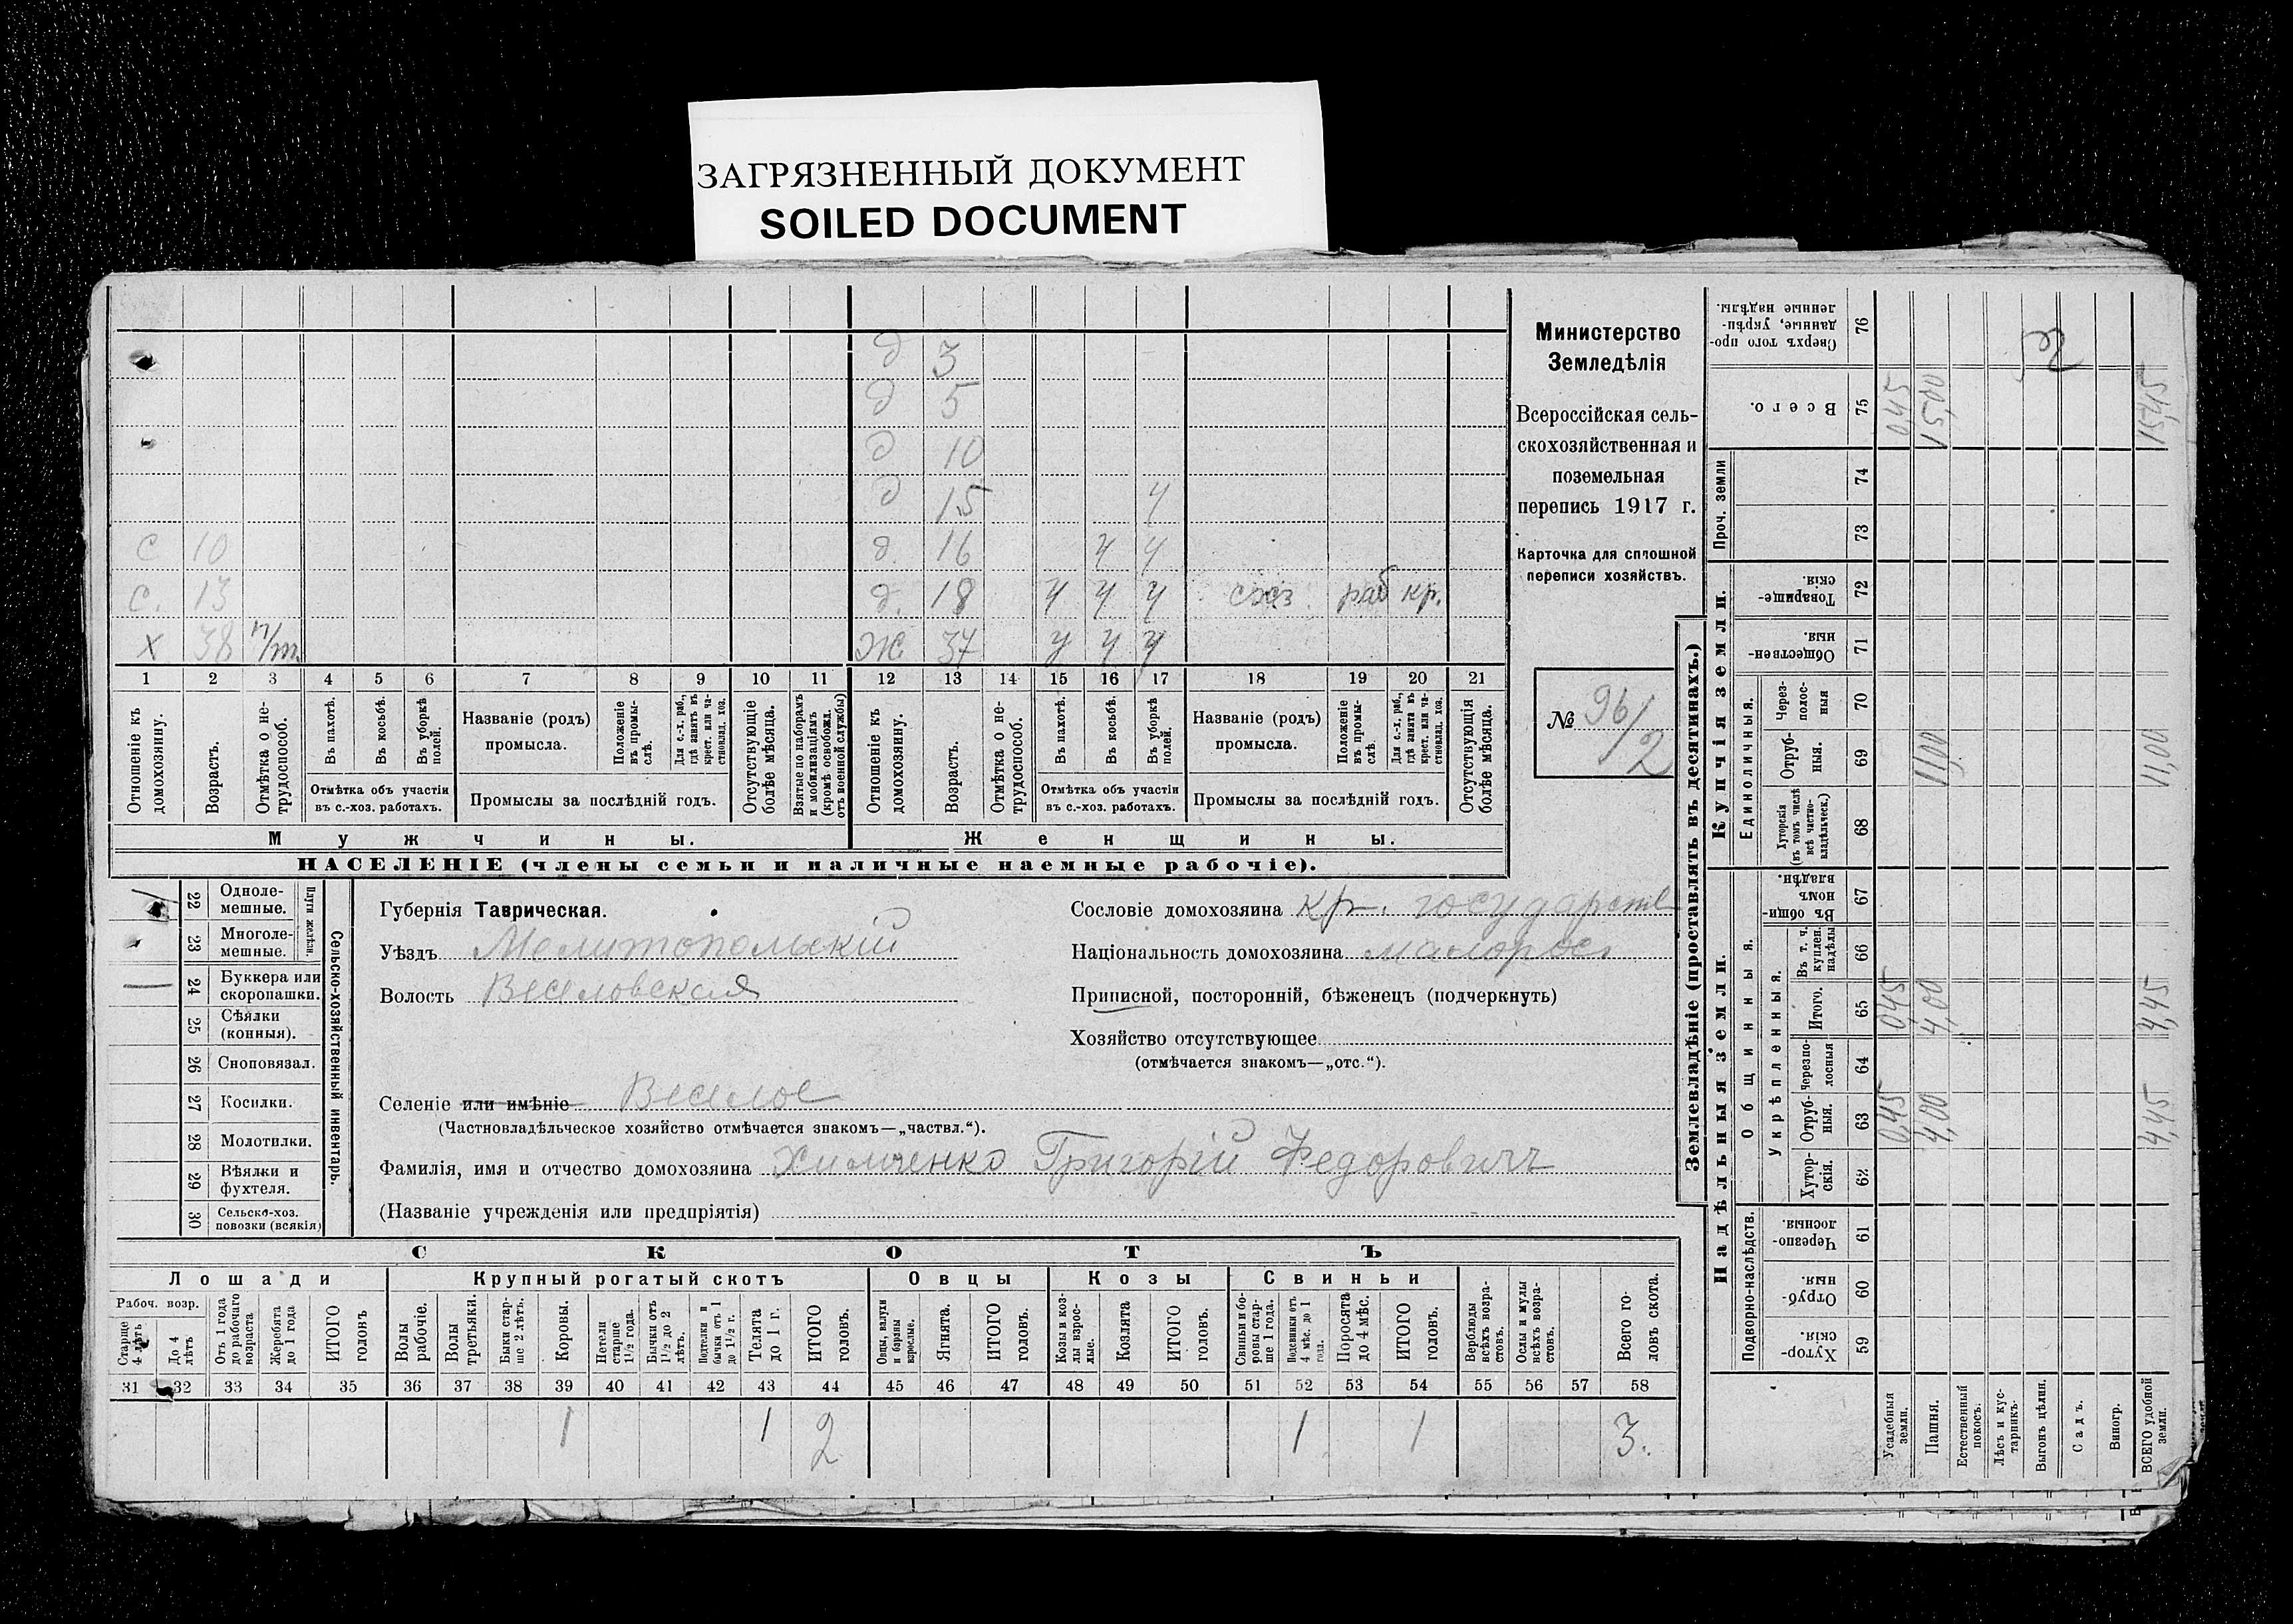 ЗАГРЯЗНЕННЫЙ ДОКУМЕНТ
SOILED DOCUMENT
д 3
д 5
д 10
д 15 у
с 10 д. 16 у у
с. 13 д. 18 у у у схз. раб кр.
х 38 ж. 37 у у у
1 2 3 4 5 6 7 8 9 10 11 12 13 14 15 16 17 18 19 20 21
Отношеніе къ домохозяину.
Возрастъ.
Отмѣтка о не-трудоспособ.
Въ пахотѣ.
Въ косьбѣ.
Въ уборкѣ полей.
Отмѣтка объ участіи въ с.-хоз. работахъ.
Названіе (родъ) промысла.
Положеніе въ промы-слѣ.
Для с.-х. раб., гдѣ занятъ въ крест. или ча-стновлад. хоз.
Промыслы за послѣдній годъ.
Отсутствующіе болѣе мѣсяца.
Взятые по наборамъ и мобилизаціямъ (кромѣ освобожд. отъ военной службы)
Отношеніе къ домохозяину.
Возрастъ.
Отмѣтка о не-трудоспособ.
Въ пахотѣ.
Въ косьбѣ.
Въ уборкѣ полей.
Отмѣтка объ участіи въ с.-хоз. работахъ.
Названіе (родъ) промысла.
Положеніе въ промы-слѣ.
Для с.-х. раб., гдѣ занята въ крест. или ча-стновлад. хоз.
Промыслы за послѣдній годъ.
Отсутствующія болѣе мѣсяца.
Мужчины. Женщины.
НАСЕЛЕНІЕ (члены семьи и наличные наемные рабочіе).
Министерство
Земледѣлія
Всероссійская сель-
скохозяйственная и
поземельная
перепись 1917 г.
Карточка для сплошной
переписи хозяйствъ.
№ 96/2
22 Одноле-мешные.
23 Многоле-мешные.
Плуги желѣзн.
24 Буккера или скоропашки.
25 Сѣялки (конныя).
26 Сноповязал.
27 Косилки.
28 Молотилки.
29 Вѣялки и фухтеля.
30 Сельско-хоз. повозки (всякія)
Сельско-хозяйственный инвентарь.
Губернія Таврическая.
Уѣздъ Мелитопольскій
Волость Веселовская
Селеніе или имѣніе Веселое
(Частновладѣльческое хозяйство отмѣчается знакомъ—„частвл.“).
Фамилія, имя и отчество домохозяина Химченко Григорій Федоровичъ
(Названіе учрежденія или предпріятія)
Сословіе домохозяина кр. государств
Національность домохозяина малоросъ
Приписной, посторонній, бѣженецъ (подчеркнуть)
Хозяйство отсутствующее
(отмѣчается знакомъ—„отс.“).
СКОТЪ
Лошади Крупный рогатый скотъ Овцы Козы Свиньи
Рабоч. возр.
Старше 4 лѣтъ
До 4 лѣтъ
Отъ 1 года до рабочаго возраста
Жеребята до 1 года
ИТОГО головъ
Волы рабочіе.
Волы третьяки.
Быки стар-ше 2 лѣтъ.
Коровы.
Нетели старше 1½ года.
Бычки отъ 1½ до 2 лѣтъ.
Подтелки и бычки отъ 1 до 1½ г.
Телята до 1 г.
ИТОГО головъ.
Овцы, валухи и бараны взрослые.
Ягнята.
ИТОГО головъ.
Козы и коз-лы взрос-лые.
Козлята
ИТОГО головъ.
Свиньи и бо-ровы стар-ше 1 года.
Подсвинки отъ 4 мѣс. до 1 года.
Поросята до 4 мѣс.
ИТОГО головъ.
Верблюды всѣхъ возра-стовъ.
Ослы и мулы всѣхъ возра-стовъ.
Всего го-ловъ скота.
31 32 33 34 35 36 37 38 39 40 41 42 43 44 45 46 47 48 49 50 51 52 53 54 55 56 57 58
1 1 2 1 1 3.
Землевладѣніе (проставлять въ десятинахъ.)
Надѣльныя земли. Купчія земли. Проч. земли
Подворно-наслѣдств.
Общинныя.
Укрѣпленныя.
Единоличныя.
Хутор-скія. 59
Отруб-ныя. 60
Черезпо-лосныя. 61
Хутор-скія. 62
Отруб-ныя. 63 0,45 4,00 4,45
Черезпо-лосныя 64
Итого. 65 0,45 4,00 4,45
Въ т. ч. куплен. надѣлы 66
Въ общин-номъ владѣн. 67
Хуторскія (въ томъ числѣ всѣ частно-владѣльческ.) 68
Отруб-ныя. 69 11,00 11,00
Через-полос-ныя 70
Обществен-ныя. 71
Товарище-скія. 72
73
74
Всего. 75 0,45 15,00 15,45
Сверхъ того про-данные, укрѣп-ленные надѣлы. 76
Усадебныя земли.
Пашня.
Естественный покосъ.
Лѣсъ и кус-тарникъ.
Выгонъ цѣлин.
Садъ.
Виногр.
ВСЕГО удобной земли.